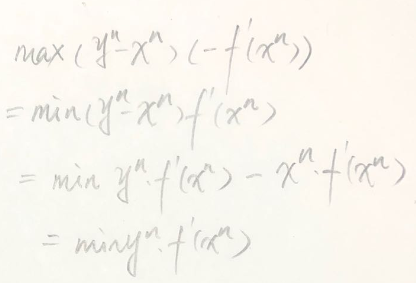 max(yⁿ-xⁿ)(-f'(xⁿ))
=min(yⁿ-xⁿ)f'(xⁿ)
= min yⁿ·f'(xⁿ) - xⁿ·f'(xⁿ)
= minyⁿ·f'(xⁿ)